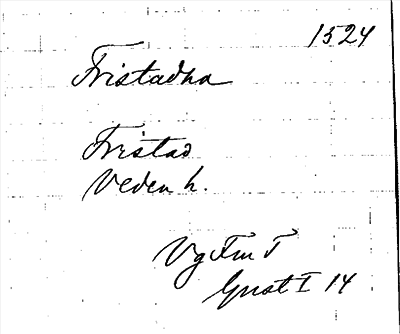 1524
Fristadha
Fristad
Veden h.
Vg Fru T
Gust I 14